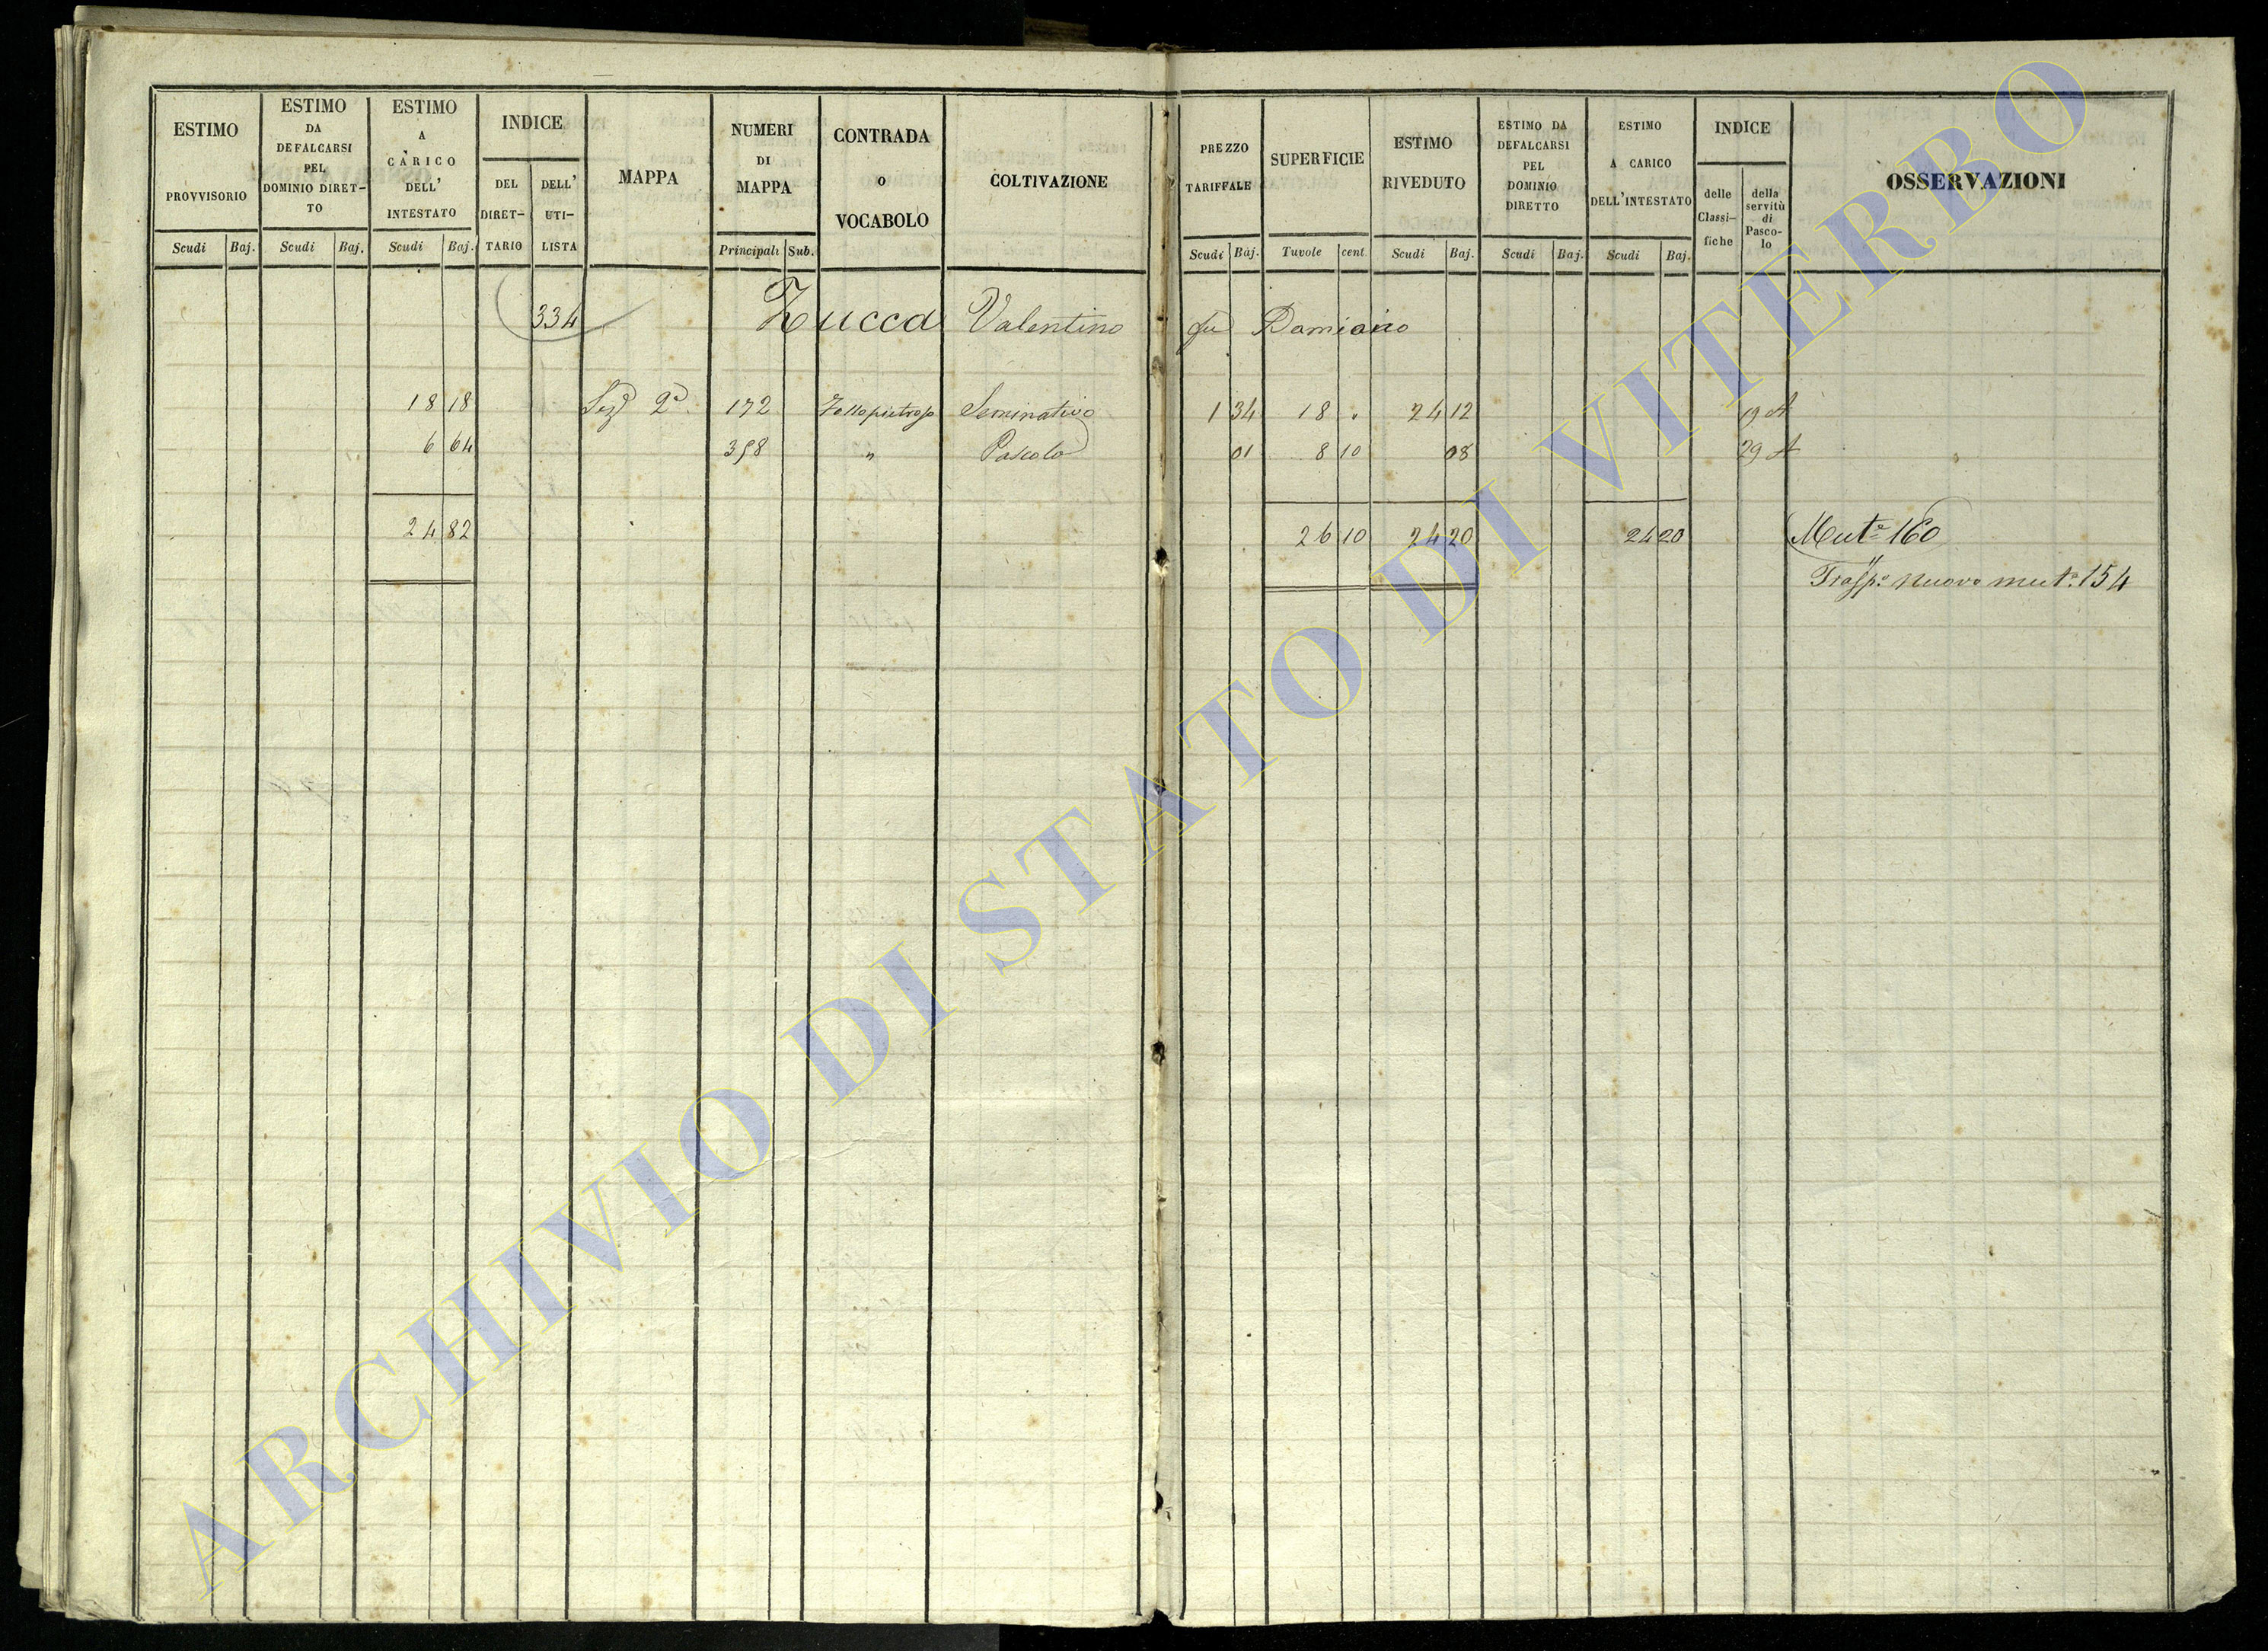 ESTIMO PROVVISORIO Scudi Baj.
ESTIMO DA DEFALCARSI PEL DOMINIO DIRET-TO Scudi Baj.
ESTIMO A CARICO DELL' INTESTATO Scudi Baj.
INDICE DEL DIRET-TARIO DELL' UTI-LISTA
MAPPA
NUMERI DI MAPPA Principali Sub.
CONTRADA o VOCABOLO
COLTIVAZIONE
PREZZO TARIFFALE Scudi Baj.
SUPERFICIE Tavole cent
ESTIMO RIVEDUTO Scudi Baj.
ESTIMO DA DEFALCARSI PEL DOMINIO DIRETTO Scudi Baj.
ESTIMO A CARICO DELL'INTESTATO Scudi Baj.
INDICE delle Classi-fiche della servitù di Pasco-lo
OSSERVAZIONI
334 Zucca Valentino fu Damiano
18 18 Sez.e 2a 172 Seminativo 1 34 18 " 24 12 19 A
6 64 358 " Pascolo 01 8 10 08 29 A
24 82 26 10 24 20 24 20 Mut.e 160
Trasp.o nuovo mut.e 154
ARCHIVIO DI STATO DI VITERBO